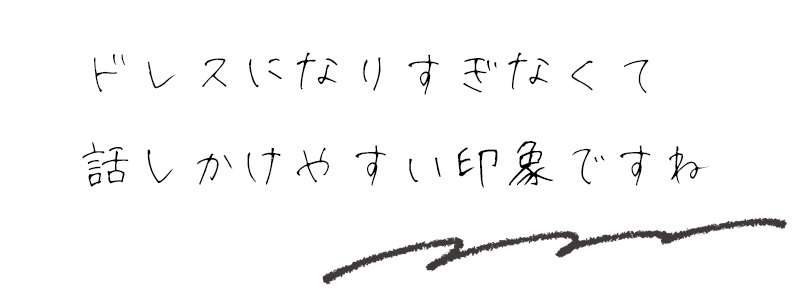 ドレスになりすぎなくて
話しかけやすい印象ですね